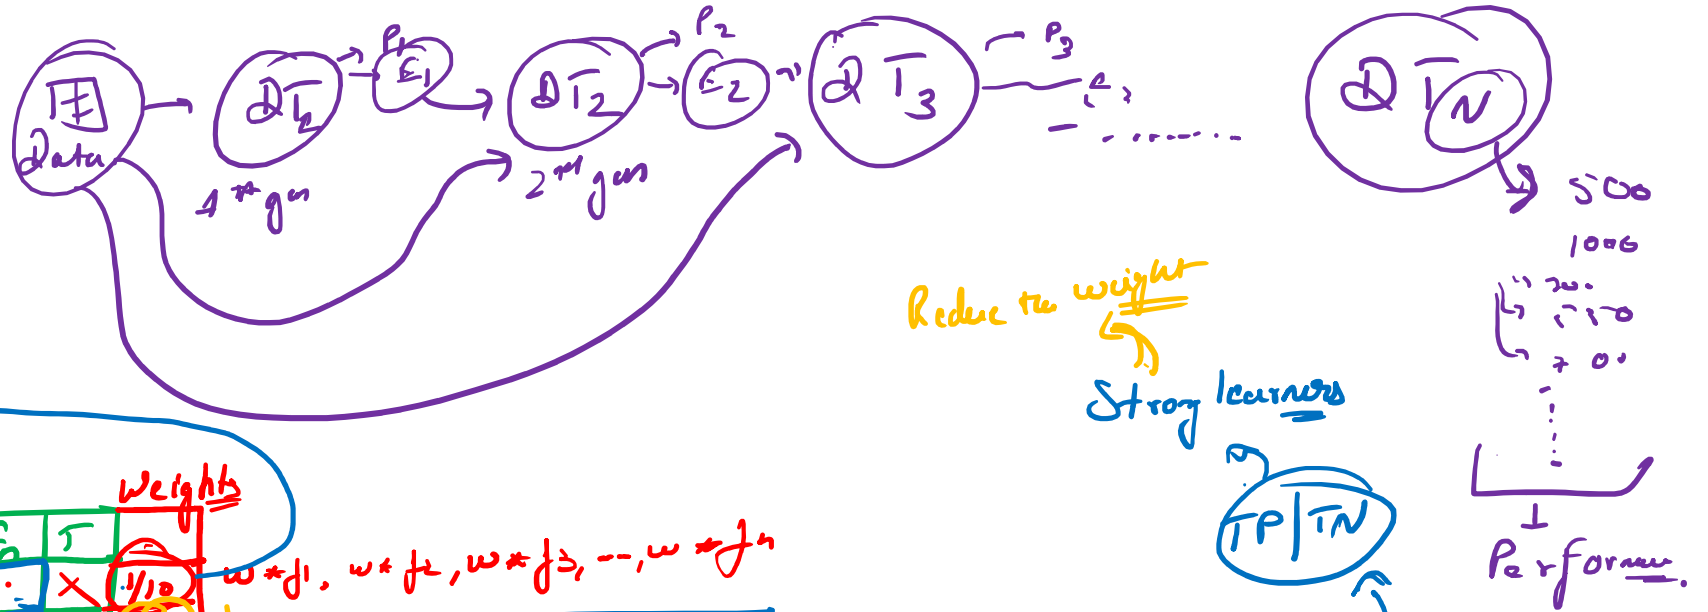 P1 P2 P3
E1 E2
DT2 DT2 DT3 DTN
Data
1st gen 2nd gen
500
1000
700
Reduce the weight
Strong learners
TP|TN
Performance.
Weights
T
X 1/10 w*f1, w*f2, w*f3, --, w*fn